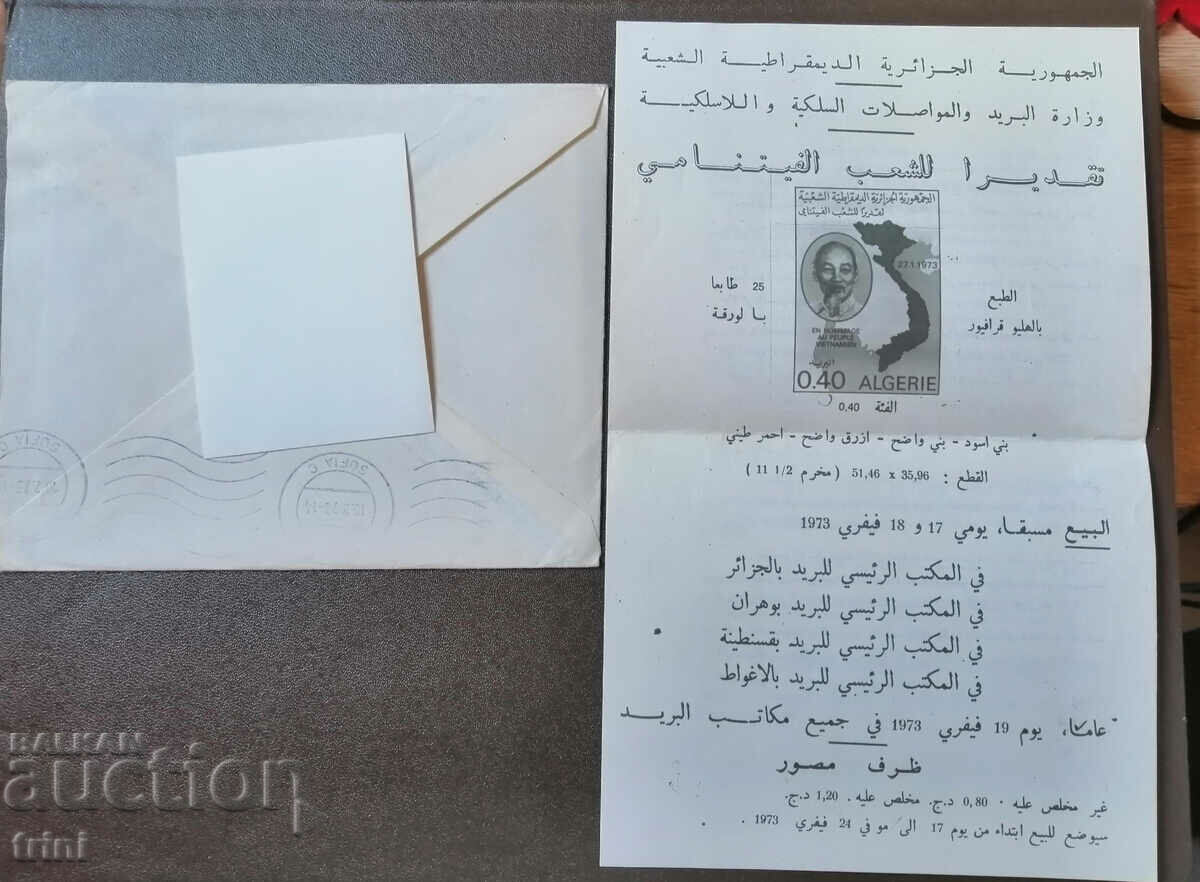 الجمهورية الجزائرية الديمقراطية الشعبية
وزارة البريد والمواصلات السلكية واللاسلكية
تقديرا للشعب الفيتنامي
الجمهورية الجزائرية الديمقراطية الشعبية
تقديرًا للشعب الفيتنامي
27.1.1973
EN HOMMAGE
AU PEUPLE
VIETNAMIEN
البريد
0.40 ALGERIE
الطبع
بالهليو قرافيور
25 طابعا
بالورقة
الفئة 0,40
بني اسود - بني واضح - ازرق واضح - احمر طيني
القطع : 35,96 x 51,46 ( مخرم 1/2 11 )
البيع مسبقا، يومي 17 و 18 فيفري 1973
في المكتب الرئيسي للبريد بالجزائر
في المكتب الرئيسي للبريد بوهران
في المكتب الرئيسي للبريد بقسنطينة
في المكتب الرئيسي للبريد بالاغواط
عاما، يوم 19 فيفري 1973 في جميع مكاتب البريد
ظرف مصور
غير مخلص عليه . 0,80 د.ج. مخلص عليه . 1,20 د.ج.
سيوضع للبيع ابتداء من يوم 17 الى مو في 24 فيفري 1973 .
SOFIA C
SOFIA C
BALKAN
auction
trini